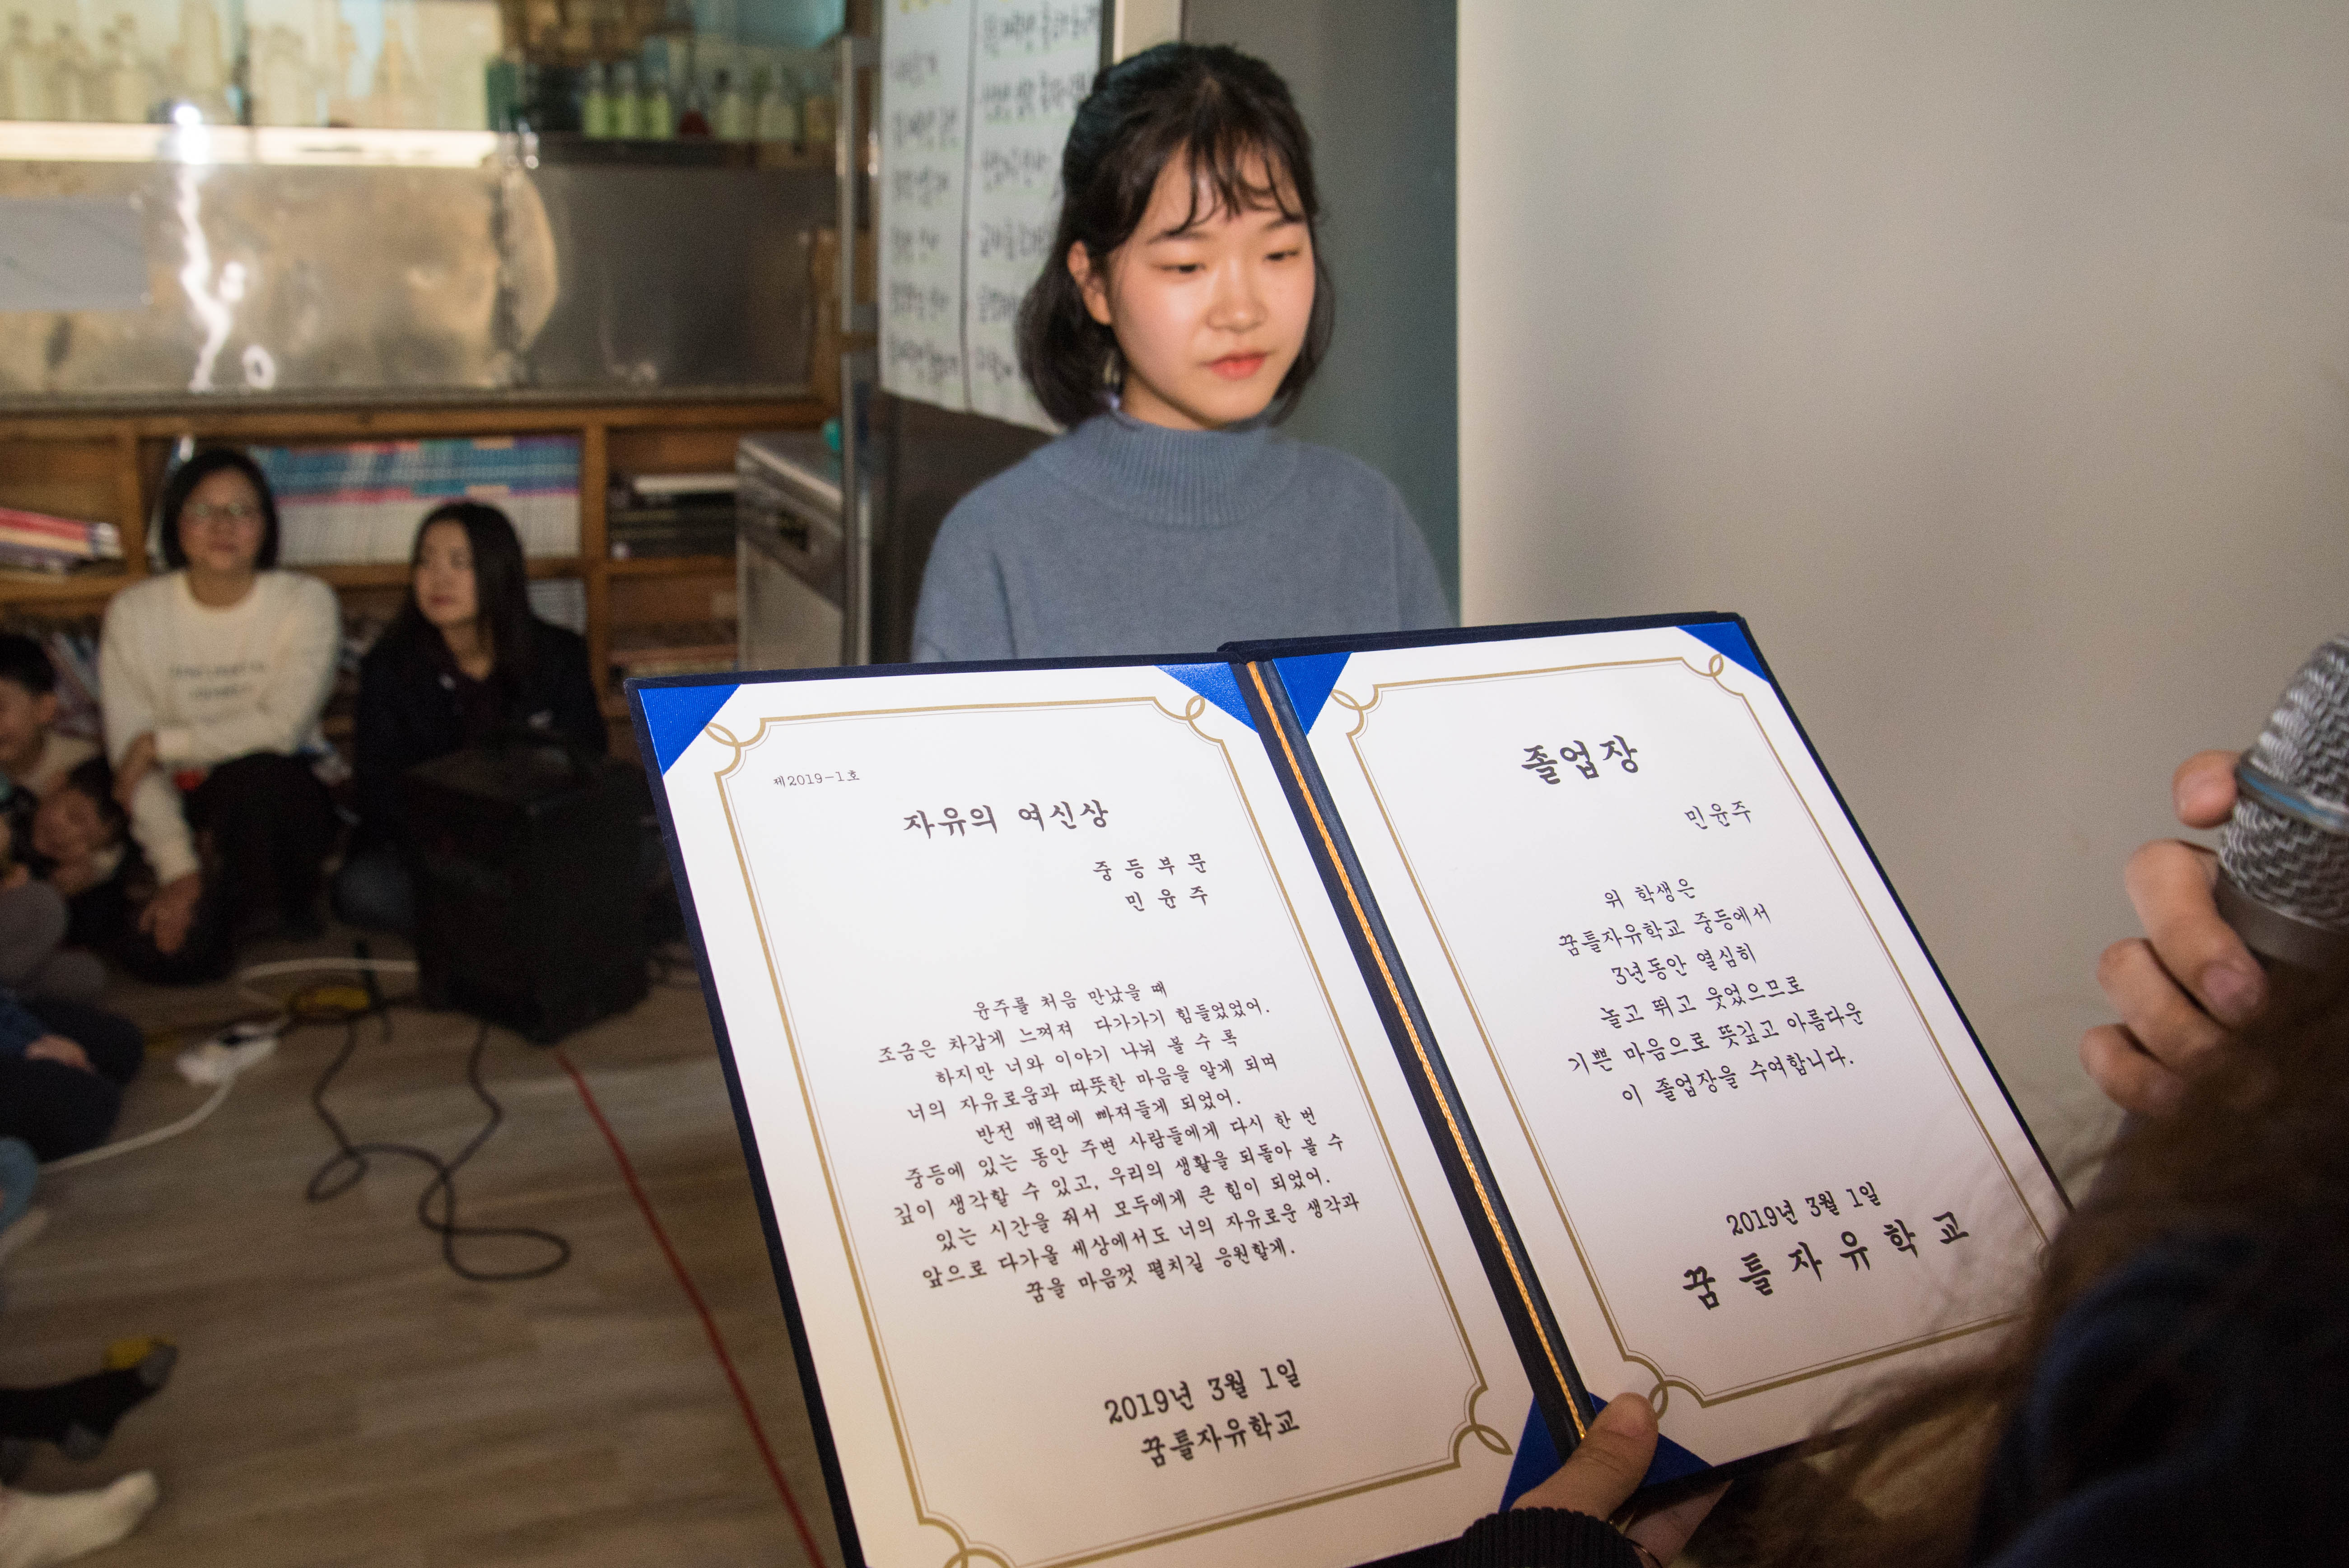 제2019-1호
자유의 여신상
중등부문
민윤주
윤주를 처음 만났을 때
조금은 차갑게 느껴져 다가가기 힘들었었어.
하지만 너와 이야기 나눠 볼 수 록
너의 자유로움과 따뜻한 마음을 알게 되며
반전 매력에 빠져들게 되었어.
중등에 있는 동안 주변 사람들에게 다시 한 번
깊이 생각할 수 있고, 우리의 생활을 되돌아 볼 수
있는 시간을 줘서 모두에게 큰 힘이 되었어.
앞으로 다가올 세상에서도 너의 자유로운 생각과
꿈을 마음껏 펼치길 응원할게.
2019년 3월 1일
꿈틀자유학교
졸업장
민윤주
위 학생은
꿈틀자유학교 중등에서
3년동안 열심히
놀고 뛰고 웃었으므로
기쁜 마음으로 뜻깊고 아름다운
이 졸업장을 수여합니다.
2019년 3월 1일
꿈틀자유학교